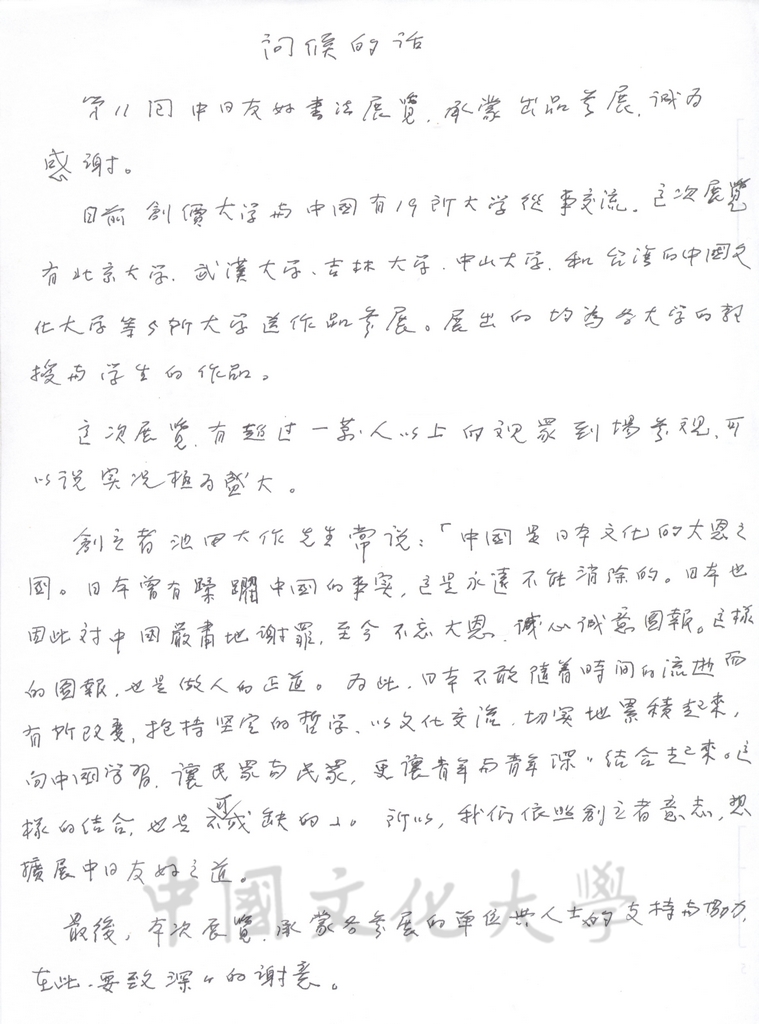 问候的话
第11回中日友好書法展覽，承蒙出品参展，诚为
感谢。
目前創價大学与中國有19所大学從事交流。这次展覽
有北京大学、武漢大学、吉林大学、中山大学、和台湾的中國文
化大学等5所大学送作品参展。展出的均為各大学的教
授与学生的作品。
这次展覽，有超过一萬人以上的观衆到場参观，可
以说实况极为盛大。
創立者池田大作先生常说：「中國是日本文化的大恩之
國。日本曾有蹂躙中國的事实，这是永遠不能消除的。日本也
因此对中國嚴肅地谢罪，至今不忘大恩，诚心诚意图報。这樣
的图報，也是做人的正道。為此，日本不敢随着時间的流逝而
有所改变，抱持坚定的哲学、以文化交流，切实地累積起來，
向中國学習，讓民衆与民衆，更讓青年与青年深〃结合起來。这
樣的结合，也是不可或缺的」。所以，我们依照創立者意志，想
擴展中日友好之道。
最後，本次展覽，承蒙各参展的單位與人士的支持与協力，
在此，要致深〃的谢意。
中國文化大學